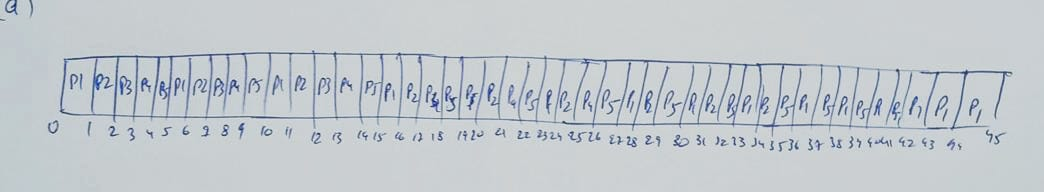 a)
P1 P2 P3 P4 P5 P1 P2 P3 P4 P5 P1 P2 P3 P4 P5 P1 P2 P5 P2 P4 P5 P2 P4 P5 P1 P2 P5 P1 P2 P5 P1 P2 P5 P1 P5 P1 P5 P1 P1 P1
0 1 2 3 4 5 6 7 8 9 10 11 12 13 14 15 16 17 18 19 20 21 22 23 24 25 26 27 28 29 30 31 32 33 34 35 36 37 38 39 40 41 42 43 44 45